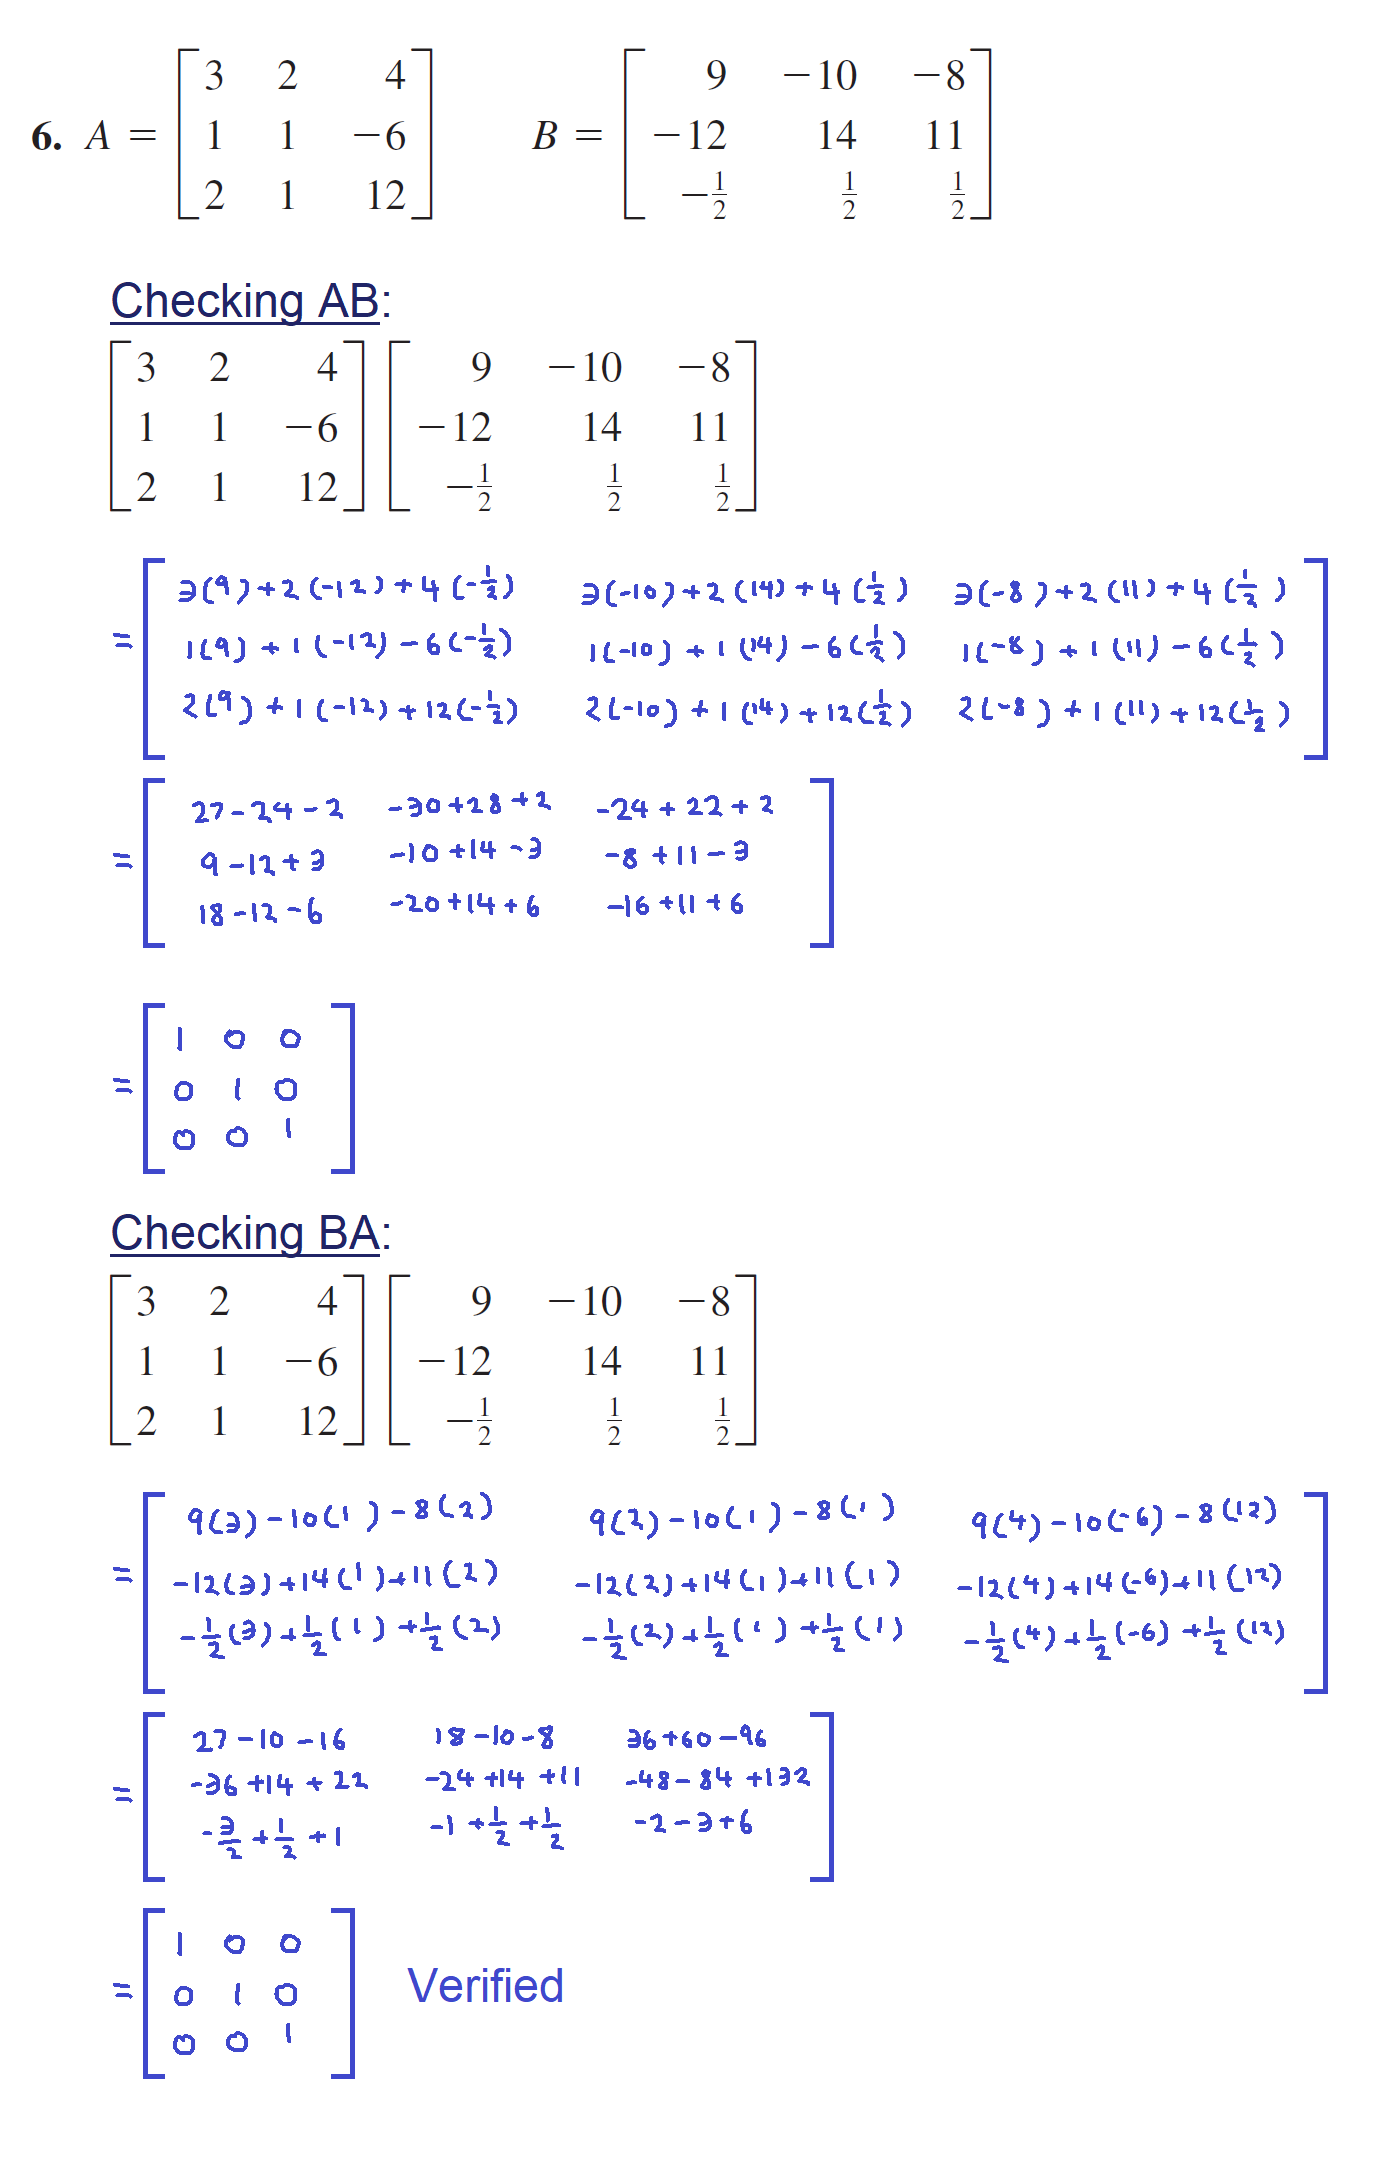 6. A = [3 2 4 B = [9 −10 −8
1 1 −6 −12 14 11
2 1 12] −1/2 1/2 1/2]
Checking AB:
[3 2 4 [9 −10 −8
1 1 −6 −12 14 11
2 1 12] −1/2 1/2 1/2]
= [3(9)+2(-12)+4(-1/2) 3(-10)+2(14)+4(1/2) 3(-8)+2(11)+4(1/2)
1(9)+1(-12)-6(-1/2) 1(-10)+1(14)-6(1/2) 1(-8)+1(11)-6(1/2)
2(9)+1(-12)+12(-1/2) 2(-10)+1(14)+12(1/2) 2(-8)+1(11)+12(1/2)]
= [27-24-2 -30+28+2 -24+22+2
9-12+3 -10+14-3 -8+11-3
18-12-6 -20+14+6 -16+11+6]
= [1 0 0
0 1 0
0 0 1]
Checking BA:
[3 2 4 [9 −10 −8
1 1 −6 −12 14 11
2 1 12] −1/2 1/2 1/2]
= [9(3)-10(1)-8(2) 9(2)-10(1)-8(1) 9(4)-10(-6)-8(12)
-12(3)+14(1)+11(2) -12(2)+14(1)+11(1) -12(4)+14(-6)+11(12)
-1/2(3)+1/2(1)+1/2(2) -1/2(2)+1/2(1)+1/2(1) -1/2(4)+1/2(-6)+1/2(12)]
= [27-10-16 18-10-8 36+60-96
-36+14+22 -24+14+11 -48-84+132
-3/2+1/2+1 -1+1/2+1/2 -2-3+6]
= [1 0 0
0 1 0
0 0 1] Verified